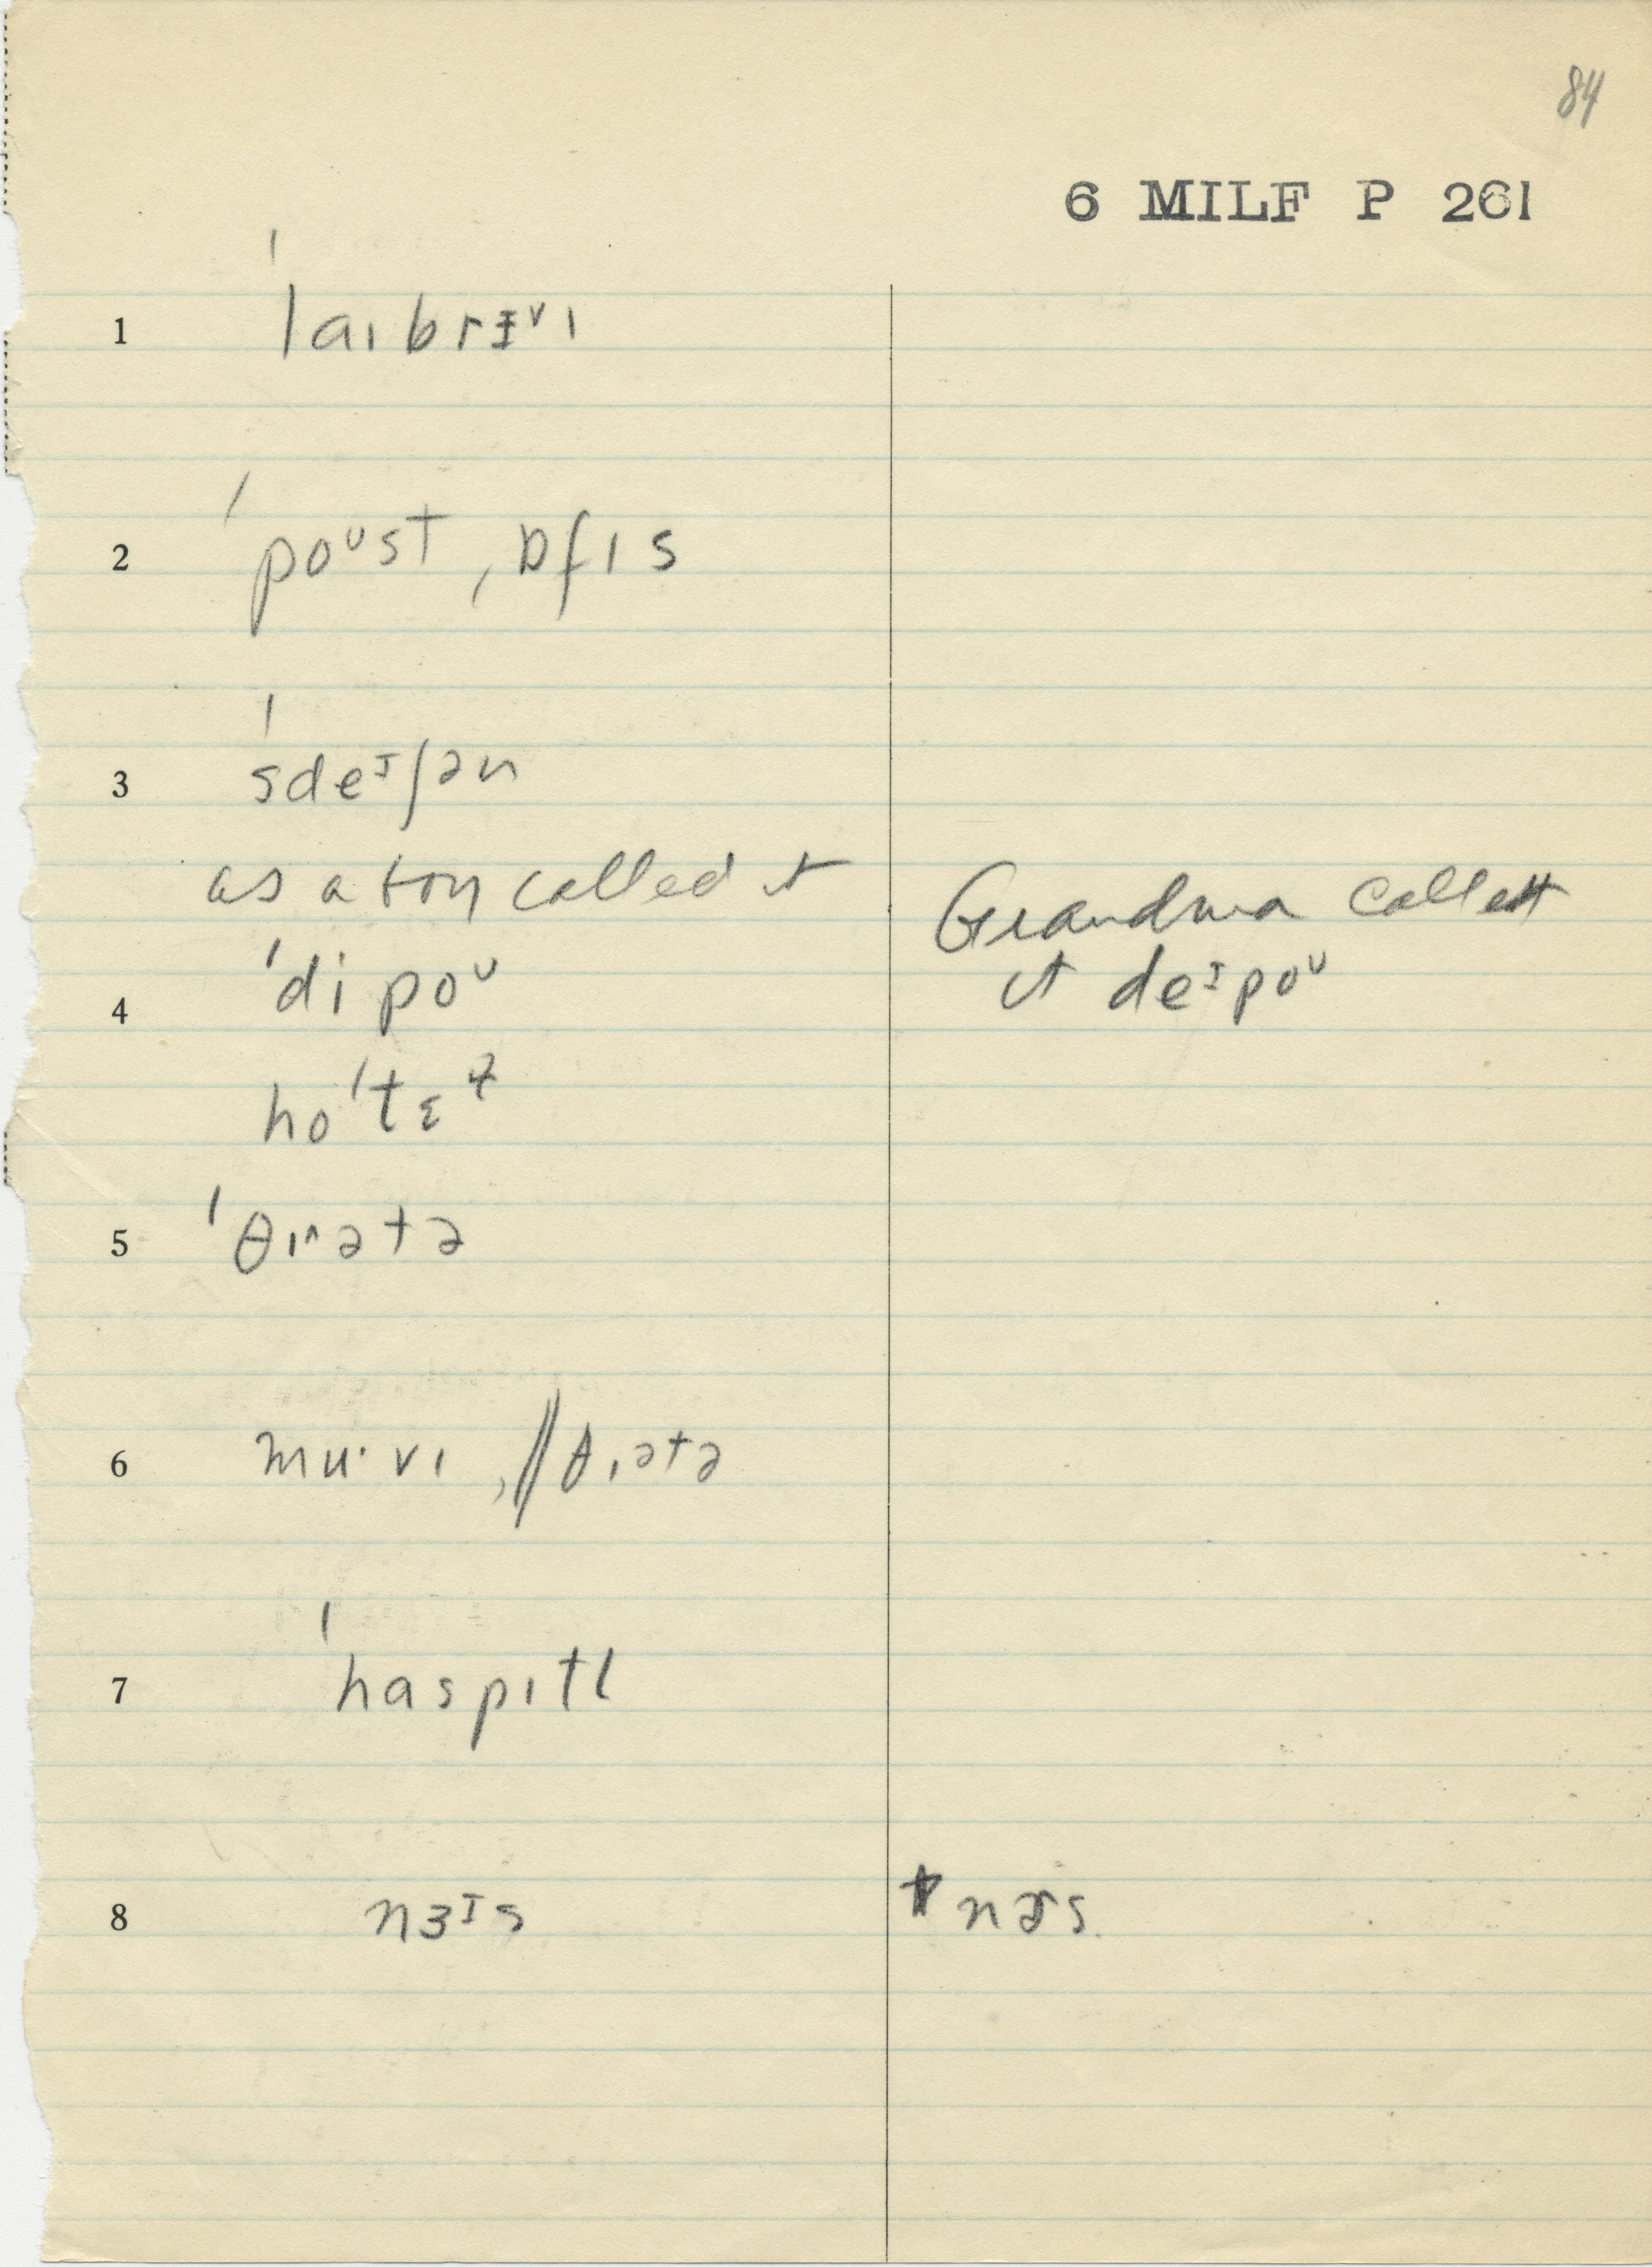 84
6 MILF P 261
1 ˈlaɪbrɪᵛɪ
2 ˈpoᶷst ˌɒfɪs
3 ˈsdeᶦʃən
as a boy called it
Grandma called
4 ˈdipoᶷ
it deᶦpoᶷ
hoˈtɛɫ
5 ˈθɪʌətə
6 mu·vɪ ,//θɪətə
7 ˈhaspɪtl
8 nɜᶦs
nɚs